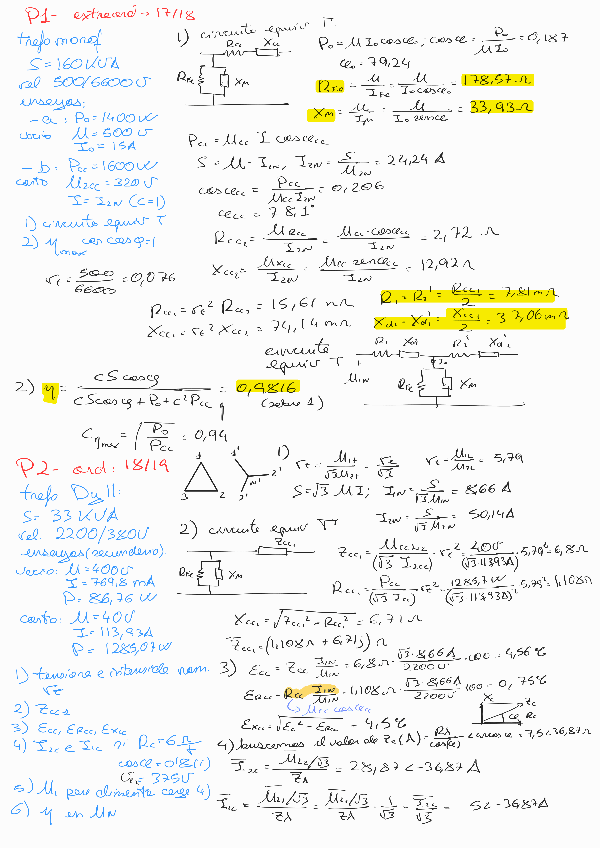 P1- extraord → 17/18
trafo monof
S = 160 KVA
rel 500/6600 V
ensayos:
- a: P₀ = 1400 W
vacio U = 500 V
I₀ = 15A
- b: Pcc = 1600 W
corto U2cc = 320 V
I = I2N (C=1)
1) circuito equiv T
2) η max con cosφ=1
1) circuito equiv Γ
Rcc Xcc
RFe Xm
P₀ = U I₀ cosφ₀, cosφ = P₀ / U I₀ = 0,187
φ₀ = 79,24
RFe = U / IFe = U / I₀ cosφ₀ = 178,57 Ω
Xm = U / Iμ = U / I₀ senφ = 33,93 Ω
Pcc = Ucc I cosφcc
S = U · I2N, I2N = S / U2N = 24,24 A
cosφcc = Pcc / Ucc I2N = 0,206
φcc = 78,1°
Rcc2 = URcc / I2N = Ucc · cosφcc / I2N = 2,72 Ω
Xcc2 = UXcc / I2N = Ucc senφcc / I2N = 12,92 Ω
rt = 500 / 6600 = 0,076
Rcc1 = rt² Rcc2 = 15,61 mΩ
Xcc1 = rt² Xcc2 = 74,14 mΩ
R1 = R2' = Rcc1 / 2 = 7,81 mΩ
Xd1 = Xd2' = Xcc1 / 2 = 37,06 mΩ
circuito equiv T
U1N RFe Xm
2) η = c S cosφ / c S cosφ + P₀ + c² Pcc = 0,9816
(sobre 1)
Cηmax = √ P₀ / Pcc = 0,94
P2- ord: 18/19
trafo Dy11:
S = 33 KVA
rel. 2200/380V
ensayos (secundario):
vacio: U = 400 V
I = 769,8 mA
P = 86,76 W
corto: U = 40 V
I = 113,93A
P = 1285,07 W
1) tensiones e intensidade nom.
rt
2) Zcc2
3) Ecc, ERcc, EXcc
4) I2c e I1c
cosφ = 0,8 (i)
5) U1 para alimenta carga 4)
6) η en UN
1) rt = U1t / √3 U2t = rt / √3 rt = U1L / U2L = 5,79
S = √3 U I; I1N = S / √3 U1N = 8,66 A
I2N = S / √3 U2N = 50,14A
2) circuito equiv Γ
Zcc1
RFe Xm
Zcc1 = Ucc2 / (√3 I2cc) · rt² = 40V / √3 · 113,93A · 5,79² = 6,8 Ω
Rcc1 = Pcc / · rt² = 1285,7 W · 5,79² = 1,108 Ω
Xcc1 = √ Zcc1² - Rcc1² = 6,71 Ω
Zcc1 = (1,108 + 6,71j) Ω
3) Ecc = Zcc I1N / U1N = 6,8 Ω · √3 · 8,66A / 2200V · 100 = 4,56 %
ERcc = Rcc I1N / U1N = 1,108 · √3 · 8,66A / 2200V · 100 = 0,75%
Ucc cosφcc
EXcc = √ Ecc² - ERcc² = 4,5 %
4) buscamos el valor de
I2c = U2c/√3 / Zλ = 28,87 < -36,87 A
I1c = U2c/√3 / Zλ = Uc1/√3 / Zλ · 1 / √3 = I2c / √3 = 5 < -36,87 A